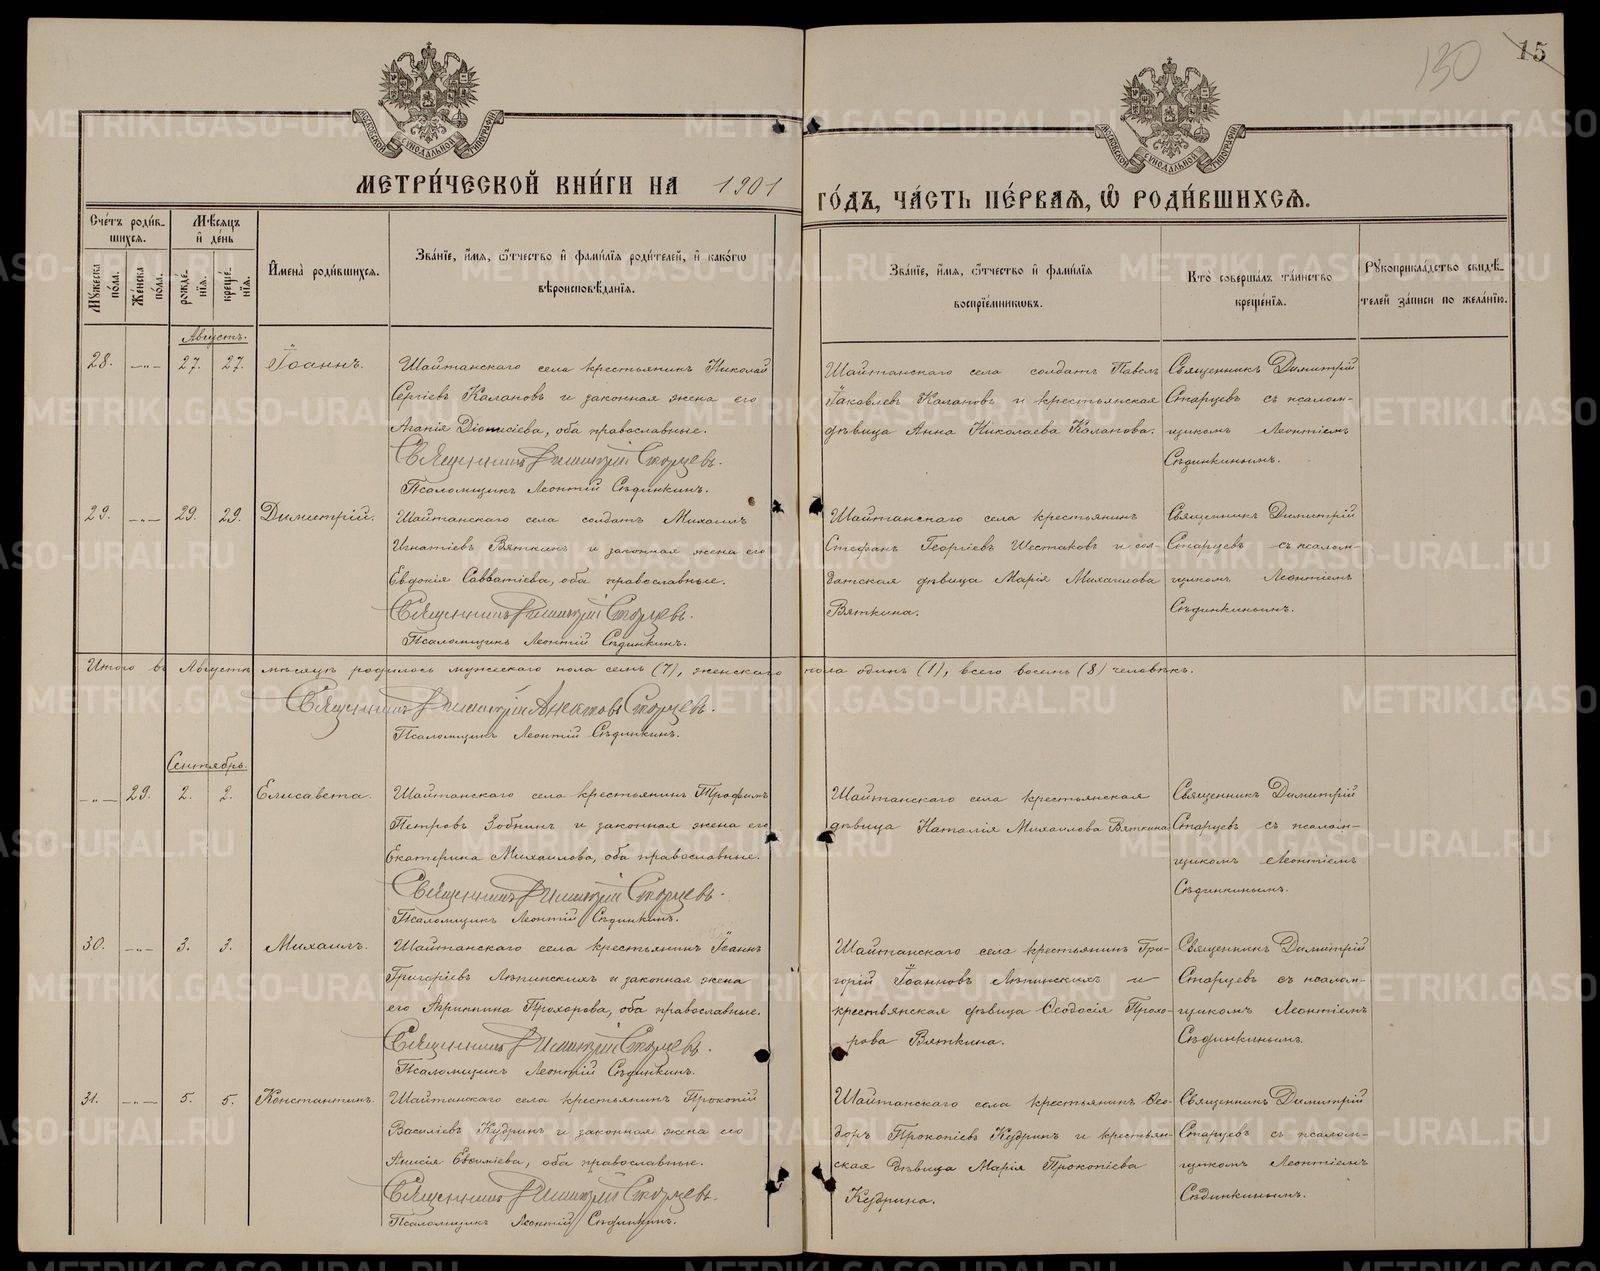 130
15
МОСКОВСКОЙ СѴНОДАЛЬНОЙ ТИПОГРАФІИ
МОСКОВСКОЙ СѴНОДАЛЬНОЙ ТИПОГРАФІИ
МЕТРИ́ЧЕСКОЙ КНИ́ГИ НА 1901 ГО́ДЪ, ЧА́СТЬ ПЕ́РВАѦ, Ѽ РОДИ́ВШИХСѦ.
Сче́тъ роди́в-
шихсѧ.
Мꙋжеска по́ла.
Же́нска по́ла.
Мѣ́сѧцъ
и҆ де́нь
рожде́нїѧ.
креще́нїѧ.
И҆мена̀ роди́вшихсѧ.
Зва́нїе, и҆́мѧ, ѻ҆́тчество и҆ фами́лїѧ роди́телей, и҆ како́гѡ
вѣроисповѣ́данїѧ.
Зва́нїе, и҆́мѧ, ѻ҆́тчество и҆ фами́лїѧ
воспрїе́мникѡвъ.
Кто̀ соверша́лъ та́инство
креще́нїѧ.
Рꙋкоприкла́дство свидѣ́-
телей за́писи по жела́нїю.
Августъ.
28. —"— 27. 27. Іоаннъ.
Шайтанскаго села крестьянинъ Николай
Сергіевъ Калановъ и законная жена его
Агапія Діонисіева, оба православные.
Священникъ Димитрій Старцевъ.
Псаломщикъ Леонтій Сѣдинкинъ.
Шайтанскаго села солдатъ Павелъ
Іаковлевъ Калановъ и крестьянская
дѣвица Анна Николаева Каланова.
Священникъ Димитрій
Старцевъ съ псалом-
щикомъ Леонтіемъ
Сѣдинкинымъ.
29. —"— 29. 29. Димитрій.
Шайтанскаго села солдатъ Михаилъ
Игнатіевъ Вяткинъ и законная жена его
Евдокія Савватіева, оба православные.
Священникъ Димитрій Старцевъ.
Псаломщикъ Леонтій Сѣдинкинъ.
Шайтанскаго села крестьянинъ
Стефанъ Георгіевъ Шестаковъ и сол-
датская дѣвица Марія Михаилова
Вяткина.
Священникъ Димитрій
Старцевъ съ псалом-
щикомъ Леонтіемъ
Сѣдинкинымъ.
Итого въ Августѣ мѣсяцѣ родилось мужескаго пола семь (7), женскаго пола одинъ (1), всего восемь (8) человѣкъ.
Священникъ Димитрій Старцевъ.
Псаломщикъ Леонтій Сѣдинкинъ.
Сентябрь.
—"— 29. 2. 2. Елисавета.
Шайтанскаго села крестьянинъ Трофимъ
Петровъ Зобнинъ и законная жена его
Екатерина Михаилова, оба православные.
Священникъ Димитрій Старцевъ.
Псаломщикъ Леонтій Сѣдинкинъ.
Шайтанскаго села крестьянская
дѣвица Наталія Михаилова Вяткина
Священникъ Димитрій
Старцевъ съ псалом-
щикомъ Леонтіемъ
Сѣдинкинымъ.
30. —"— 3. 3. Михаилъ.
Шайтанскаго села крестьянинъ Іоаннъ
Григоріевъ Ляпинскихъ и законная жена
его Агриппина Прохорова, оба православные.
Священникъ Димитрій Старцевъ.
Псаломщикъ Леонтій Сѣдинкинъ.
Шайтанскаго села крестьянинъ Гри-
горій Іоанновъ Ляпинскихъ и
крестьянская дѣвица Ѳеодосія Прохо-
рова Вяткина.
Священникъ Димитрій
Старцевъ съ псалом-
щикомъ Леонтіемъ
Сѣдинкинымъ.
31. —"— 5. 5. Константинъ.
Шайтанскаго села крестьянинъ Прокопій
Василіевъ Кудринъ и законная жена его
Анисія Евѳиміева, оба православные.
Священникъ Димитрій Старцевъ.
Псаломщикъ Леонтій Сѣдинкинъ.
Шайтанскаго села крестьянинъ Ѳео-
доръ Прокопіевъ Кудринъ и крестьян-
ская дѣвица Марія Прокопіева
Кудрина.
Священникъ Димитрій
Старцевъ съ псалом-
щикомъ Леонтіемъ
Сѣдинкинымъ.
METRIKI.GASO-URAL.RU